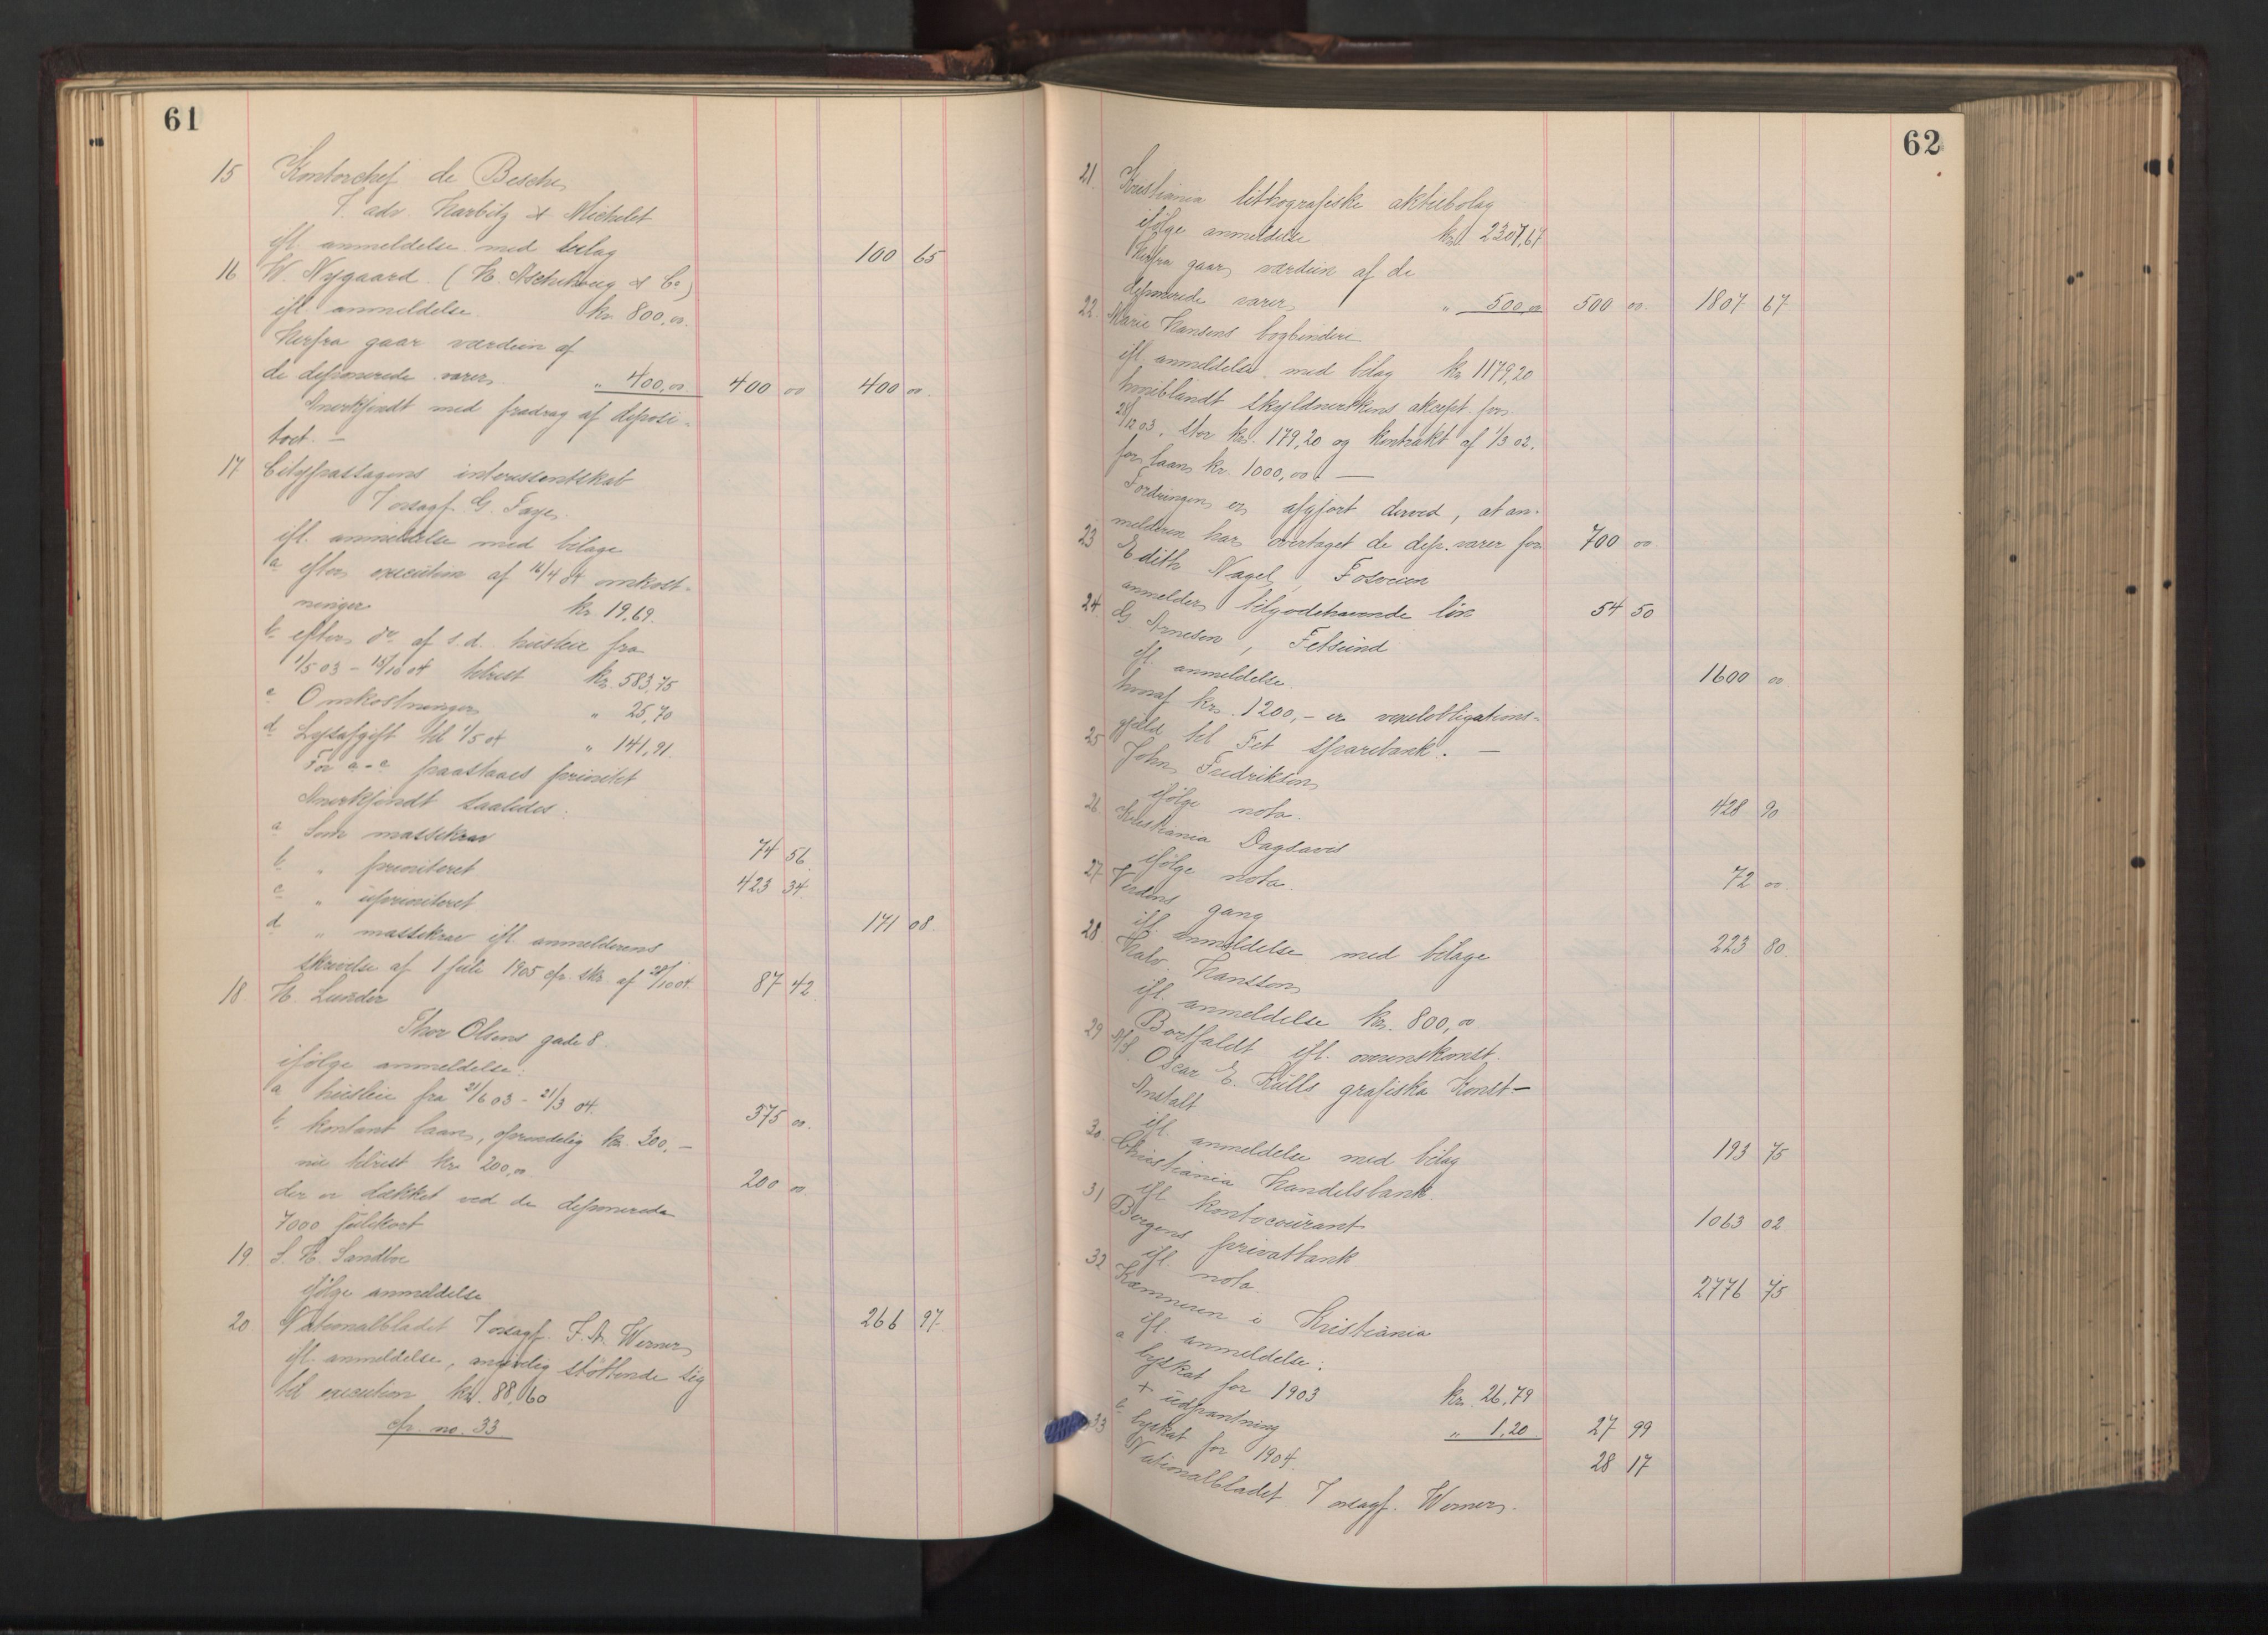 61
15 Kontorchef de Besche,
T. adv. Harbitz & Michelet
ifl. anmeldelse med bilag 100 65
16 W. Nygaard. (H. Aschehoug & Co)
ifl. anmeldelse. kr. 800,00.
Herfra gaar værdien af
de deponerede varer. " 400,00. 400 00 400 00.
Anerkjendt med fradrag af deposi-
toet. —
17 Citypassagens interessentskab
T. orsagf. G. Faye.
ifl. anmeldelse med bilage
a efter execution af 16/4 04 omkost-
ninger kr. 19,69.
b. efter do af s.d. husleie fra
1/5 03 - 15/10 04 tilrest kr. 583,75
c Omkostninger " 25,70
d Lysafgift til 1/5 04 " 141,91.
For a-c paastaaes prioritet
Anerkjendt saaledes:
a Som massekrav 74 56
b. " prioriteret 423 34.
c " uprioriteret 171 08.
d " massekrav ifl. anmelderens
skrivelse af 1 juli 1905 cfr. skr. af 28/10 04. 87 42.
18 H. Lunder
Thor Olsens gade 8.
ifølge anmeldelse:
a husleie fra 21/6 03 - 21/3 04. 375 00.
b. kontant laan, oprindelig kr. 300,—
nu tilrest kr. 200,00 200 00.
der er dækket ved de deponerede
7000 julekort
19. S. H. Sandboe
ifølge anmeldelse. 266 97.
20. Nationalbladet T. orsagf. F. A. Werner,
ifl. anmeldelse, angivelig støttende sig
til execution kr. 88,60
cfr. no. 33
62
21. Kristiania lithografiske aktiebolag
ifølge anmeldelse kr. 2307,67
Herfra gaar værdien af de
deponerede varer " 500,00 500 00. 1807 67
22. Marie Hansens bogbinderi
ifl. anmeldelse med bilag kr. 1179,20
hvoriblandt skyldnerskens akcept for
28/12 03, stor kr. 179,20 og kontrakt af 1/3 02.
for laan kr. 1000,00. —
Fordringen er afgjort derved, at an-
melderen har overtaget de dep. varer for 700 00
23 Edith Nagel, Fosveien
anmelder tilgodehavende løn 54 50
24. G. Arnesen, Fetsund
ifl. anmeldelse. 1600 00
hvoraf kr. 1200,— er vexelobligations-
gjæld til Fet sparebank. —
25 John Fredriksen
ifølge nota. 428 90
26 Kristiania Dagsavis
ifølge nota. 72 00.
27. Verdens gang
ifl. anmeldelse med bilage 223 80.
28. Halv. Hansson
ifl. anmeldelse kr. 800,00
Bortfaldt ifl. overenskomst.
29 A/B. Oscar E. Kulls grafiska Konst-
Anstalt
ifl. anmeldelse med bilag 193 75
30. Christiania Handelsbank.
ifl. kontocourant 1063 02
31 Bergens privatbank
ifl. nota. 2776 75
32 Kæmneren i Kristiania
ifl. anmeldelse:
a byskat for 1903 kr. 26,79
+ udpantning " 1,20 27 99
b. byskat for 1904. 28 17
33 Nationalbladet T. orsagf. Werner.